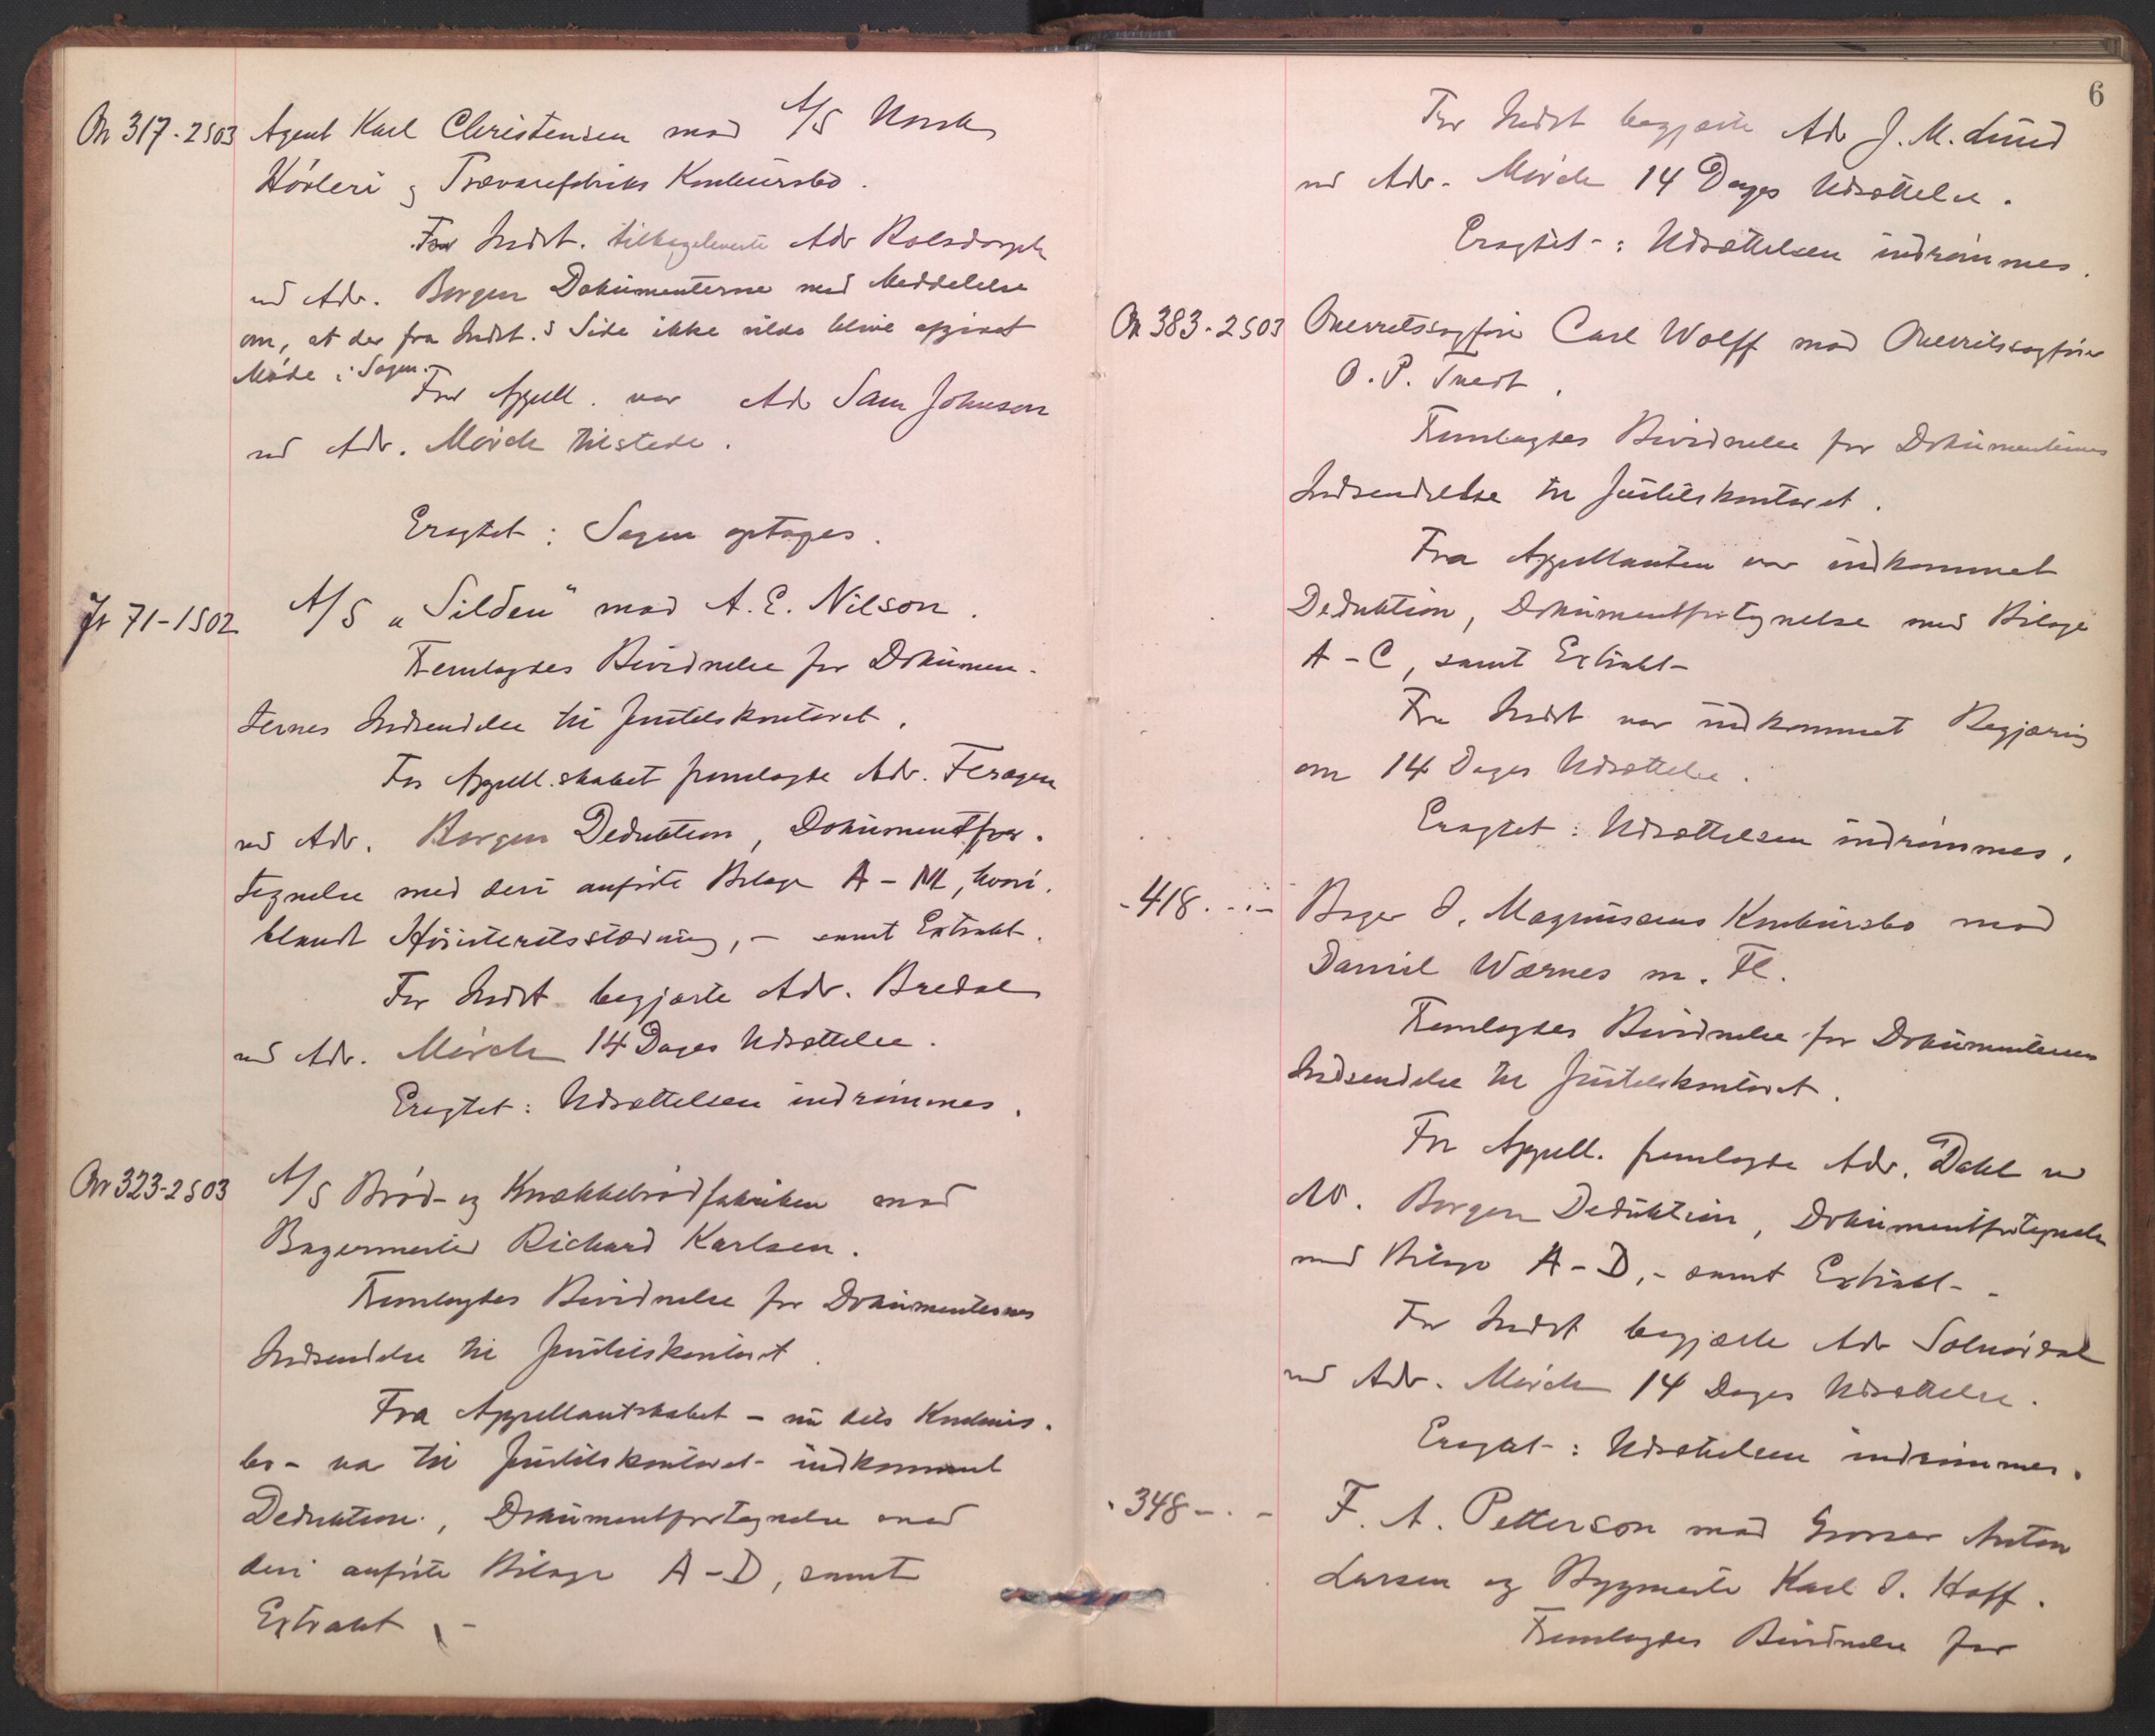 On 317-2503 Agent Karl Christensen mod A/S Norsk
Høvleri og Trævarefabriks Konkursbo.
For Indst. tilbageleverte Adv Rolsdorph
ved Adv. Borgen Dokumenterne med Meddelelse
om, at der fra Indst.s Side ikke vilde blive afgivet
Møde i Sagen.
For Appell. var Adv Sam Johnson
ved Adv. Mørch tilstede.
Eragtet: Sagen optages.
Jr 71-1502 A/S „Silden" mod A. E. Nilson.
Fremlagdes Bevidnelse for Dokumen-
ternes Indsendelse til Justitskontoret.
For Appell.skabet fremlagde Adv. Feragen
ved Adv. Borgen Deduktion, Dokumentfor-
tegnelse med deri anførte Bilage A-M, hvori-
blandt Høiesteretsstævning, - samt Extrakt.
For Indst begjærte Adv. Bredal
ved Adv. Mørch 14 Dages Udsættelse.
Eragtet: Udsættelsen indrømmes.
On 323-2503 A/S Brød- og Knækkebrødfabriken mod
Bagermester Richard Karlsen.
Fremlagdes Bevidnelse for Dokumenternes
Indsendelse til Justitskontoret.
Fra Appellantskabet - nu dets Konkurs-
bo - var til Justitskontoret indkommet
Deduktion, Dokumentfortegnelse med
deri anførte Bilage A-D, samt
Extrakt. -
6
For Indst begjærte Adv J. M. Lund
ved Adv. Mørch 14 Dages Udsættelse.
Eragtet: Udsættelsen indrømmes.
On 383-2503 Overretssagfører Carl Wolff mod Overretssagfører
O. P. Tvedt.
Fremlagdes Bevidnelse for Dokumenternes
Indsendelse til Justitskontoret.
Fra Appellanten var indkommet
Deduktion, Dokumentfortegnelse med Bilage
A-C, samt Extrakt-
Fra Indst var indkommet Begjæring
om 14 Dages Udsættelse.
Eragtet: Udsættelsen indrømmes.
-418- - Bager O. Magnussens Konkursbo mod
Daniel Wærnes m. Fl.
Fremlagdes Bevidnelse for Dokumenternes
Indsendelse til Justitskontoret.
For Appell. fremlagde Adv. Dahl ved
Adv. Borgen Deduktion, Dokumentfortegnelse
med Bilage A-D, - samt Extrakt-
For Indst begjærte Adv Solnørdal
ved Adv. Mørch 14 Dages Udsættelse.
Eragtet: Udsættelsen indrømmes.
-348- - F. A. Petterson mod Grosser Anton
Larsen og Bygmester Karl O. Hoff.
Fremlagdes Bevidnelse for